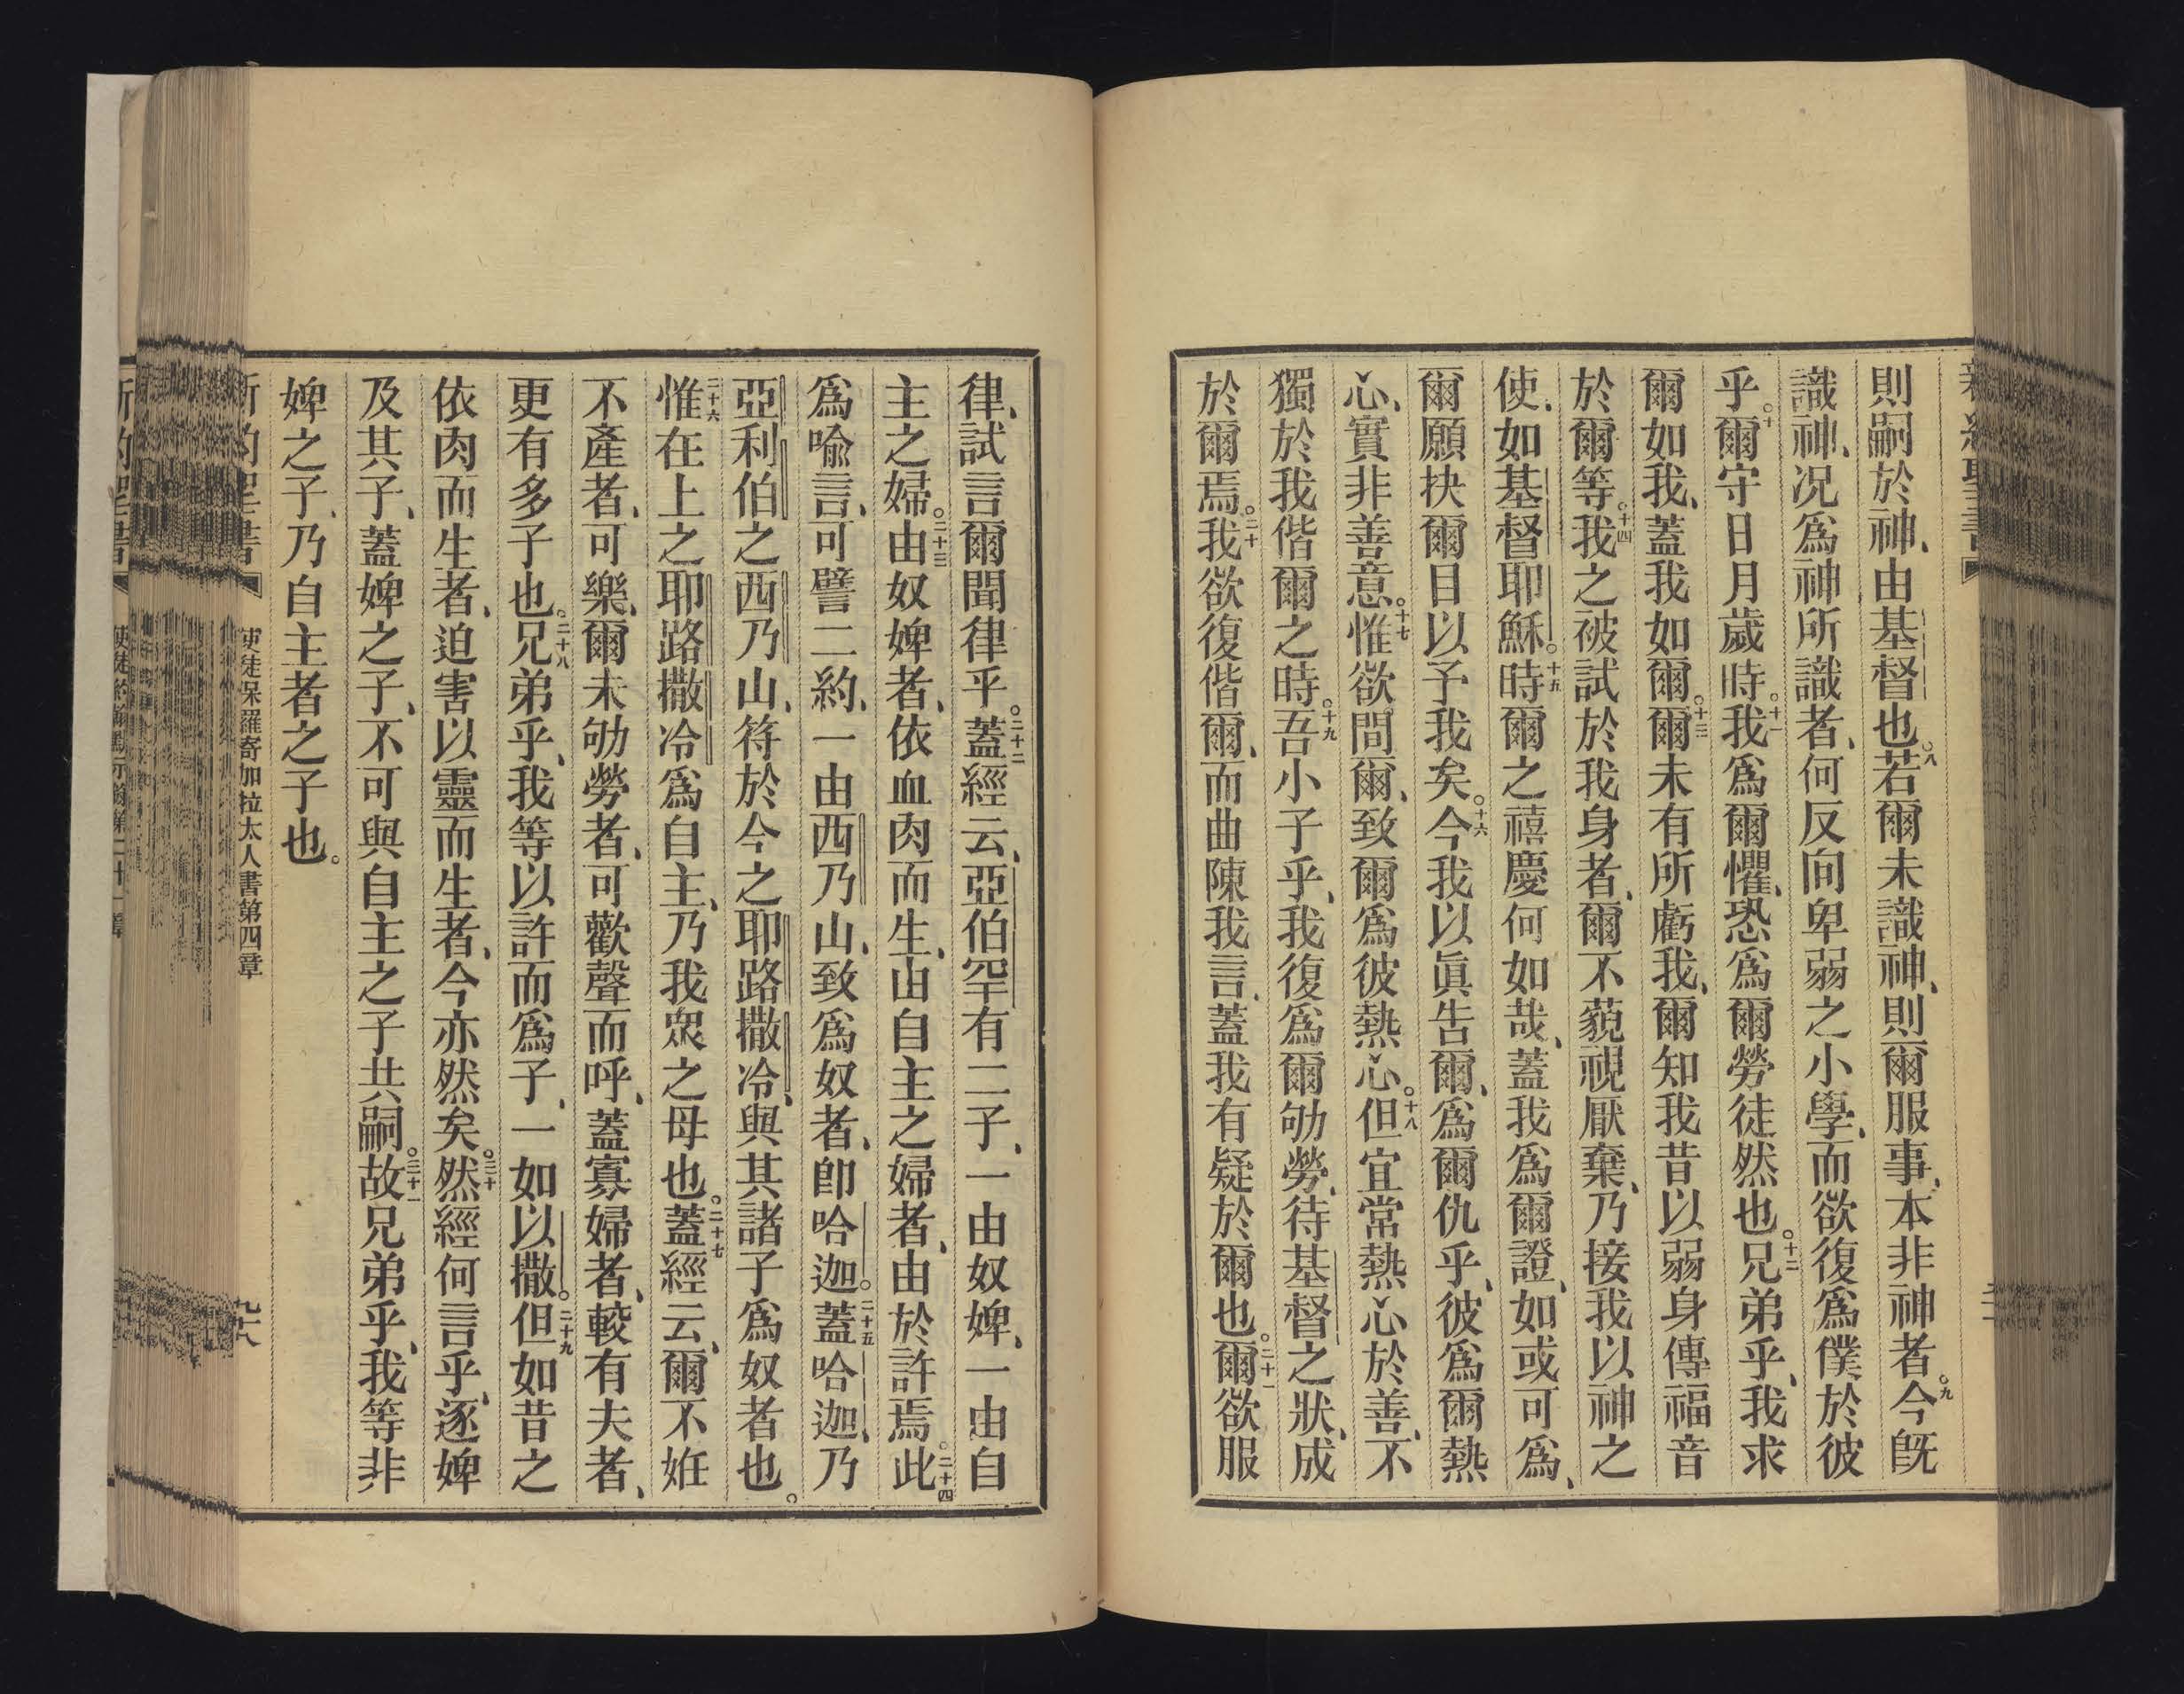 則嗣於神、由基督也。八若爾未識神、則爾服事、本非神者。九今旣
識神、況爲神所識者、何反向卑弱之小學、而欲復爲僕於彼
乎。十爾守日月歲時。十一我爲爾懼、恐爲爾勞徒然也。十二兄弟乎、我求
爾如我、蓋我如爾。十三爾未有所虧我、爾知我昔以弱身傳福音
於爾等。十四我之被試於我身者、爾不藐視厭棄、乃接我以神之
使、如基督耶穌。十五時爾之禧慶何如哉、蓋我爲爾證、如或可爲、
爾願抉爾目以予我矣。十六今我以眞告爾、爲爾仇乎、彼爲爾熱
心、實非善意。十七惟欲間爾、致爾爲彼熱心。十八但宜常熱心於善、不
獨於我偕爾之時。十九吾小子乎、我復爲爾劬勞、待基督之狀、成
於爾焉。二十我欲復偕爾、而曲陳我言、蓋我有疑於爾也。二十一爾欲服
律、試言爾聞律乎。二十二蓋經云、亞伯罕有二子、一由奴婢、一由自
主之婦。二十三由奴婢者、依血肉而生、由自主之婦者、由於許焉。二十四此
爲喻言、可譬二約、一由西乃山、致爲奴者、卽哈迦。二十五蓋哈迦、乃
亞利伯之西乃山、符於今之耶路撒冷、與其諸子爲奴者也。
二十六惟在上之耶路撒冷爲自主、乃我衆之母也。二十七蓋經云、爾不姙
不產者、可樂、爾未劬勞者、可歡聲而呼、蓋寡婦者、較有夫者、
更有多子也。二十八兄弟乎、我等以許而爲子、一如以撒。二十九但如昔之
依肉而生者、迫害以靈而生者、今亦然矣。三十然經何言乎、逐婢
及其子、蓋婢之子、不可與自主之子共嗣。三十一故兄弟乎、我等非
婢之子、乃自主者之子也。
新約聖書 使徒保羅寄加拉太人書第四章 九十八